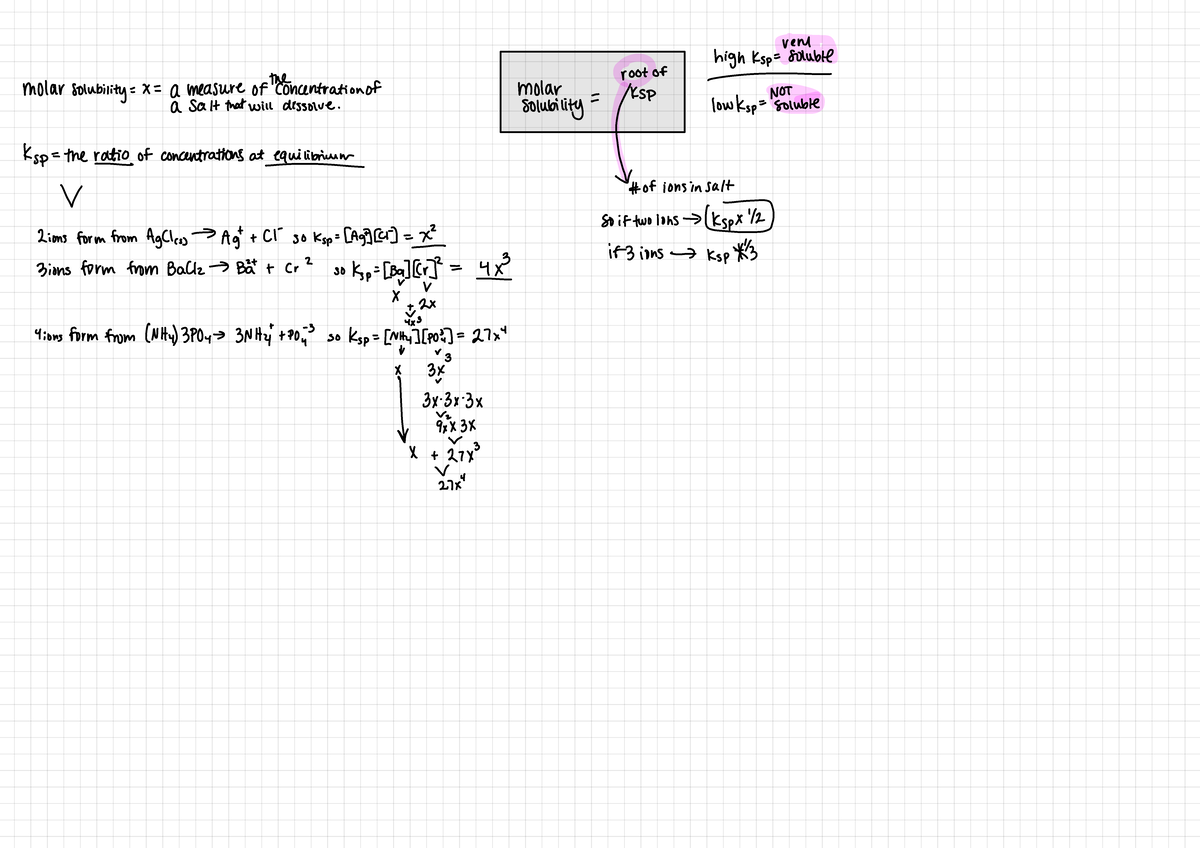 molar solubility = x = a measure of the concentration of
a salt that will dissolve.
Ksp = the ratio of concentrations at equilibrium
2 ions form from AgCl(s) → Ag⁺ + Cl⁻ so Ksp = [Ag⁺][Cl⁻] = x²
3 ions form from BaCl2 → Ba²⁺ + Cr² so Ksp = [Ba][Cr]² = 4x³
x
+ 2x
4x³
4 ions form from (NH4)3PO4 → 3NH4⁺ + PO4⁻³ so Ksp = [NH4][PO4³] = 27x⁴
x 3x³
3x·3x·3x
9x² x 3x
x + 27x³
27x⁴
molar
solubility =
root of
Ksp
high Ksp = very
soluble
low Ksp = NOT
soluble
# of ions in salt
so if two ions → Ksp x 1/2
if 3 ions → Ksp x 1/3